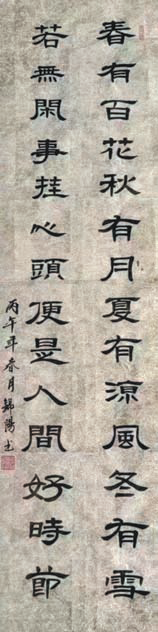 春有百花秋有月夏有涼風冬有雪
若無閑事挂心頭便是人間好時節
丙午年春月錦陽書